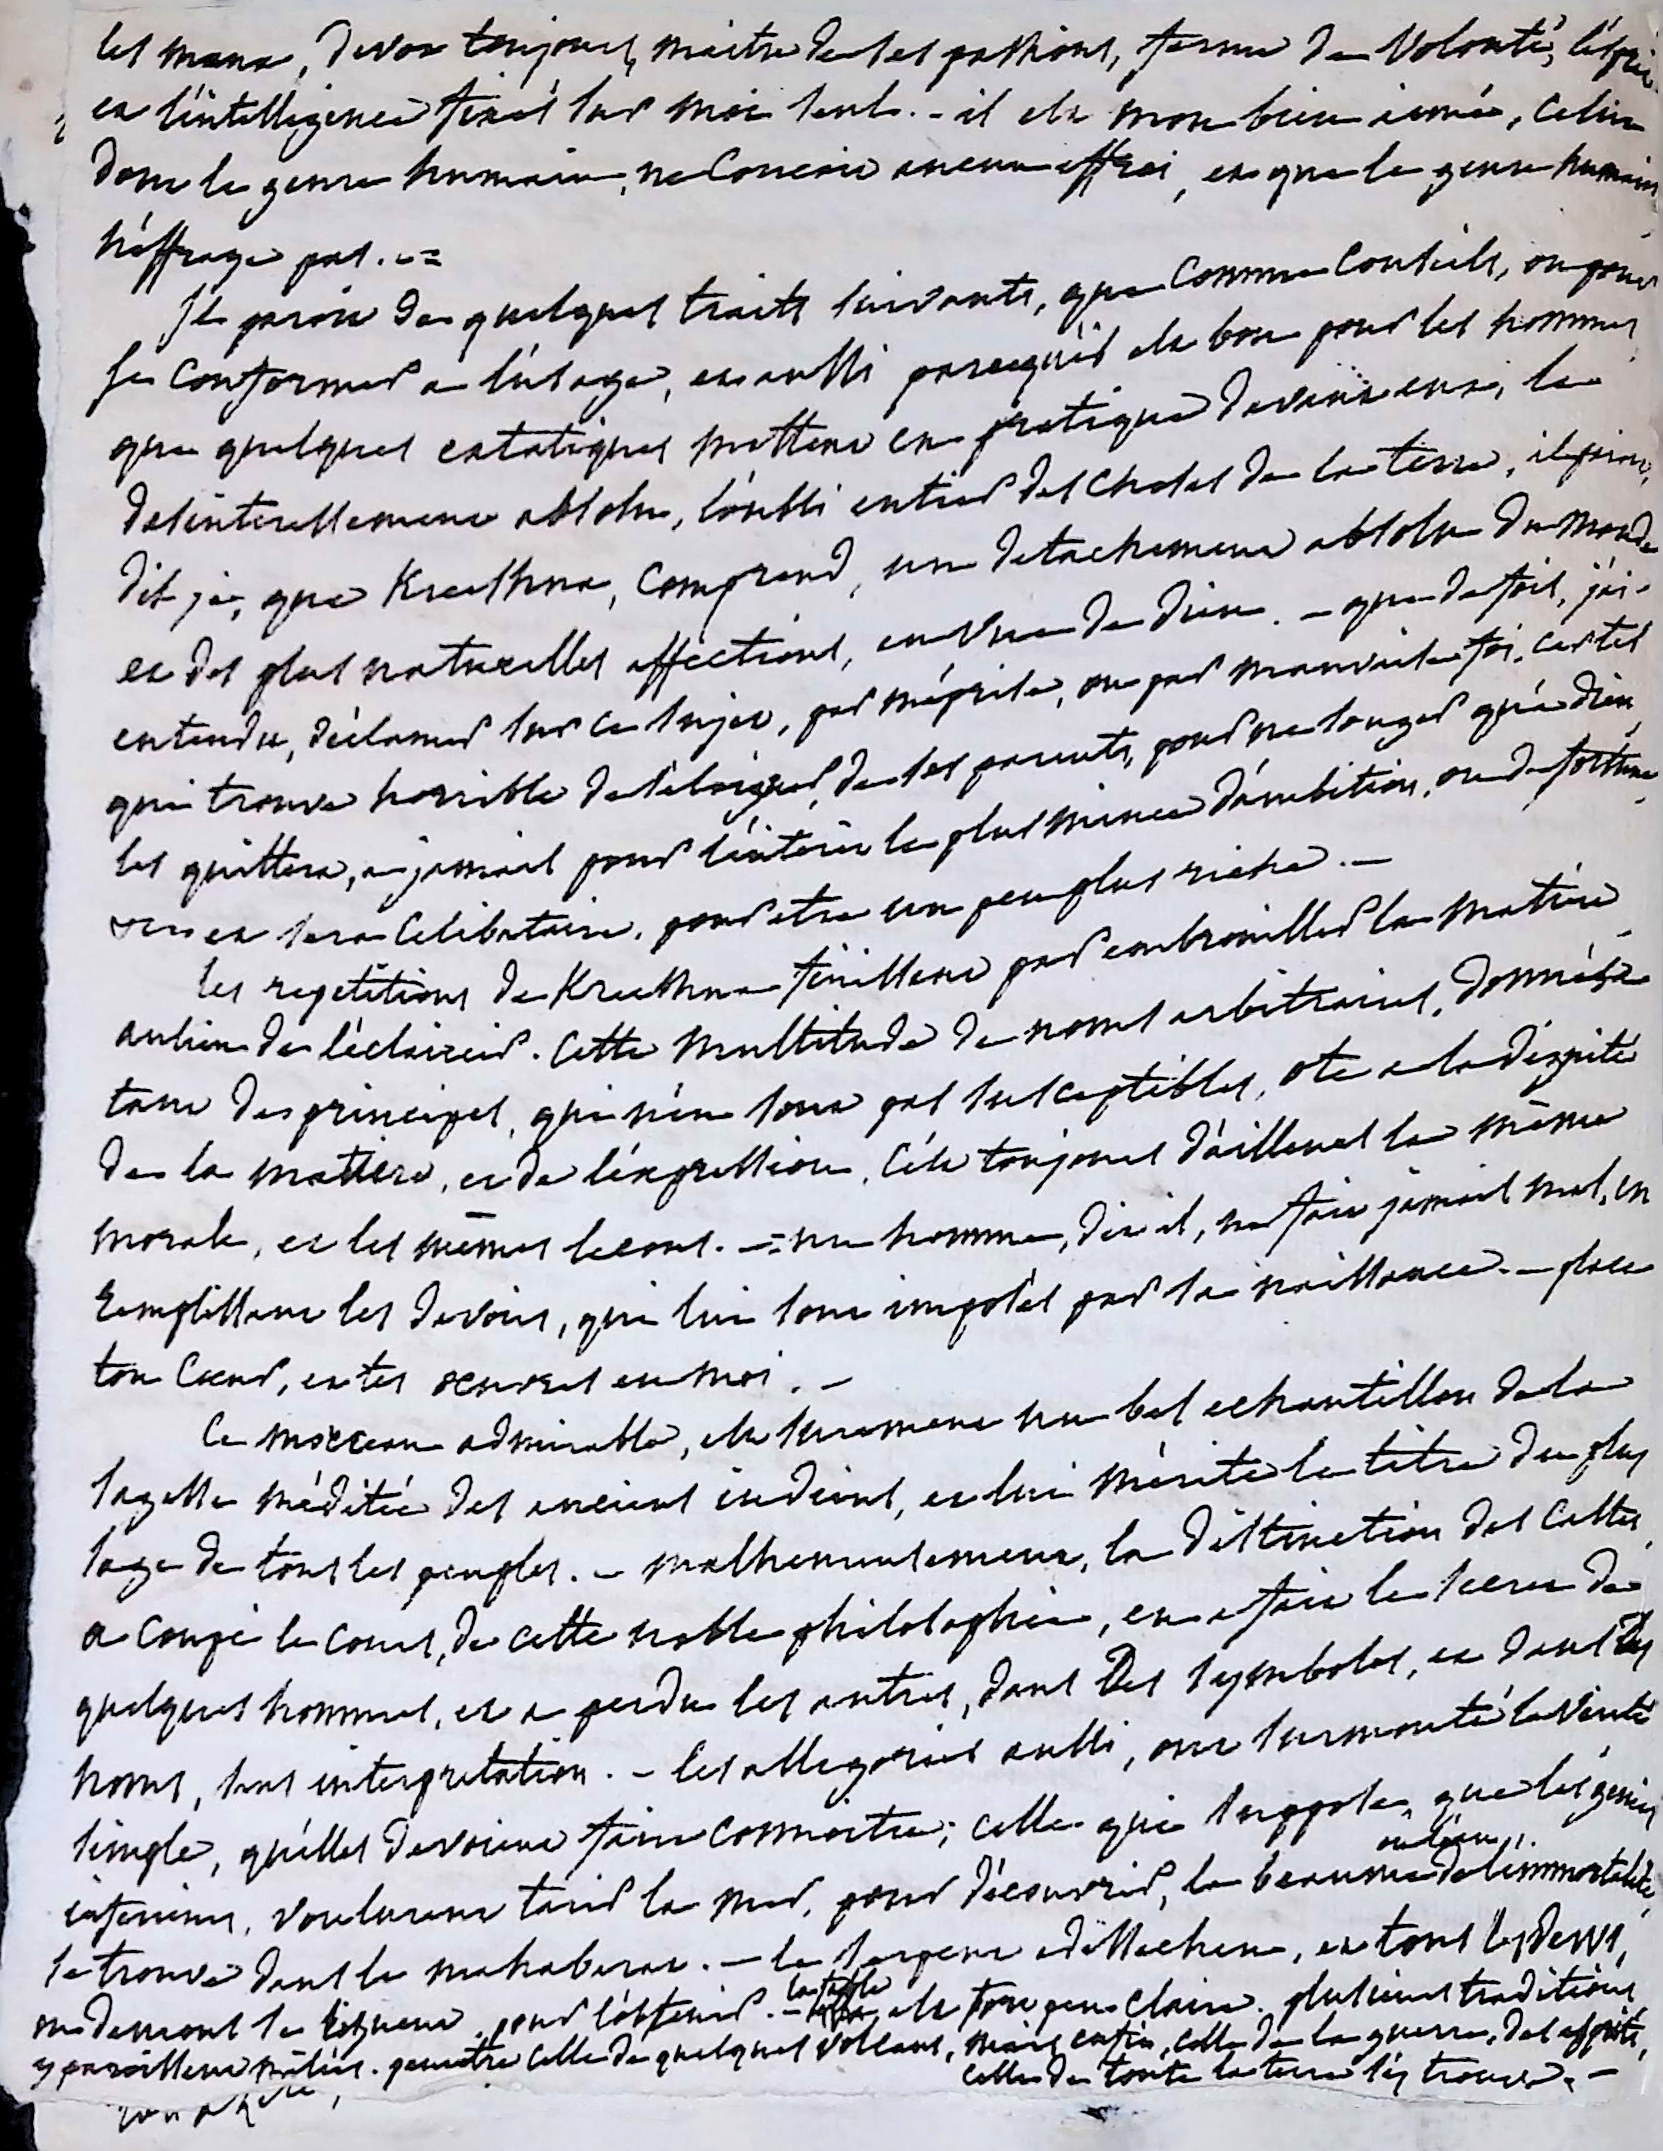 les maux, devoir toujours, maitre de ses passions, ferme de volonté, l'esprit
et l'intelligence fixés sur moi seul. - il est mon bien aimé, celui
dont le genre humain, ne concoit aucun effroi, et que le genre humain
n'effraye pas. -=
Je parois de quelques traits suivants, que comme conseils, ou pour
se conformer a l'usage, et aussi parcequ'il est bon pour les hommes
que quelques extatiques mettent en pratique devant eux, le
desinteressement absolu, l'oubli entier des choses de la terre,
dis je, que Kreeshna, comprend, un detachement absolu du monde
et des plus naturelles affections, en vue de dieu. - que de fois, j'ai
entendu, déclamer sur ce sujet, par méprise, ou par mauvaise foi. car tel
qui trouve horrible de s'eloigner, de ses parents, pour ne songer qu'a dieu
les quittera, a jamais pour l'intérêt le plus mince d'ambition, ou de fortune
et sera celibataire, pour etre un peu plus riche. -
les repetitions de Kreeshna finissent par embrouiller la matière
au lieu de l'éclaircir. cette multitude de noms arbitraires, donnés a
tant de principes, qui n'en sont pas susceptibles, ote a la dignité
de la matiere, et de l'expression, c'est toujours d'ailleurs la même
morale, et les mêmes lecons. -= un homme, dit il, ne fait jamais mal, en
remplissant les devoirs, qui lui sont imposés par sa naissance. - place
ton coeur, et tes oeuvres en moi. -
Ce morceau admirable, est surement un bel echantillon de la
sagesse méditée des anciens indiens, et lui mérite le titre du plus
sage de tous les peuples. - malheureusement, la distinction des castes
a coupé le cours, de cette noble philosophie, en a fait le secret de
quelques hommes, et a perdu les autres, dans des symboles, et dans des
noms, sans interpretation. - les allegories aussi, ont surmonté la vérité
simple, qu'elles devoient faire connoitre; celle qui suppose, que les génies
ou l'eau
inferieurs, voulurent tarir la mer, pour découvrir, le beaume de l'immortalité,
se trouve dans le mahabarat. - le serpent, et tous les dews,
en demeurent pour l'obtenir. - la fable est fort peu claire. plusieurs traditions
y paroissent mêlées. peut etre celle de quelques volcans, mais enfin, celle de la guerre, des esprits,
celle de toute la terre s'y trouve. -